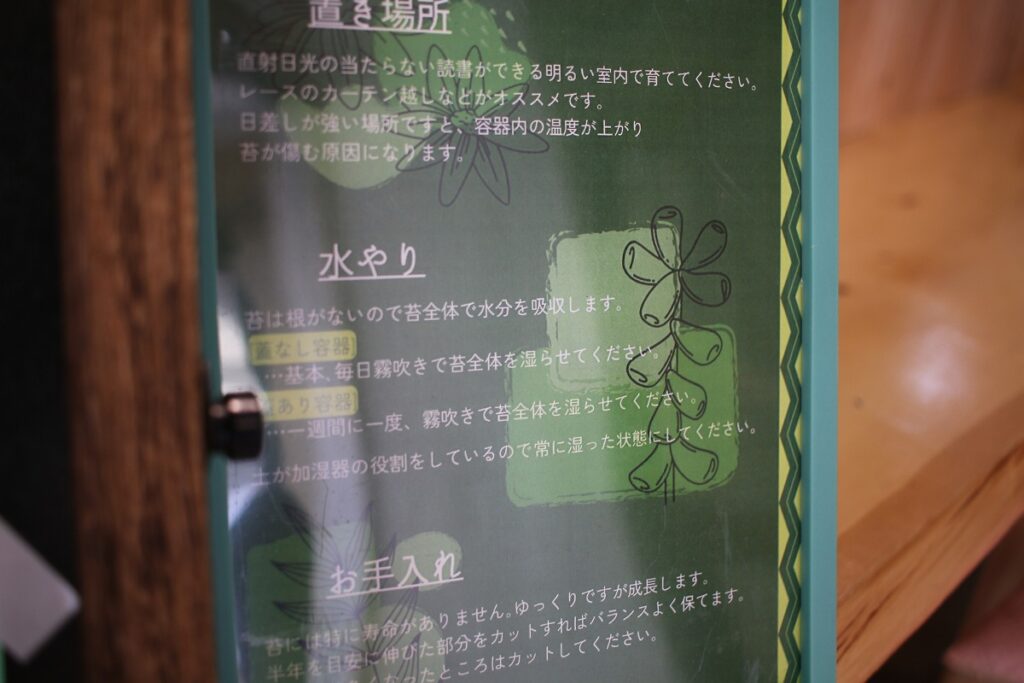 置き場所
直射日光の当たらない読書ができる明るい室内で育ててください。
レースのカーテン越しなどがオススメです。
日差しが強い場所ですと、容器内の温度が上がり
苔が傷む原因になります。
水やり
苔は根がないので苔全体で水分を吸収します。
蓋なし容器
…基本、毎日霧吹きで苔全体を湿らせてください。
蓋あり容器
…一週間に一度、霧吹きで苔全体を湿らせてください。
土が加湿器の役割をしているので常に湿った状態にしてください。
お手入れ
苔には特に寿命がありません。ゆっくりですが成長します。
半年を目安に伸びた部分をカットすればバランスよく保てます。
なったところはカットしてください。